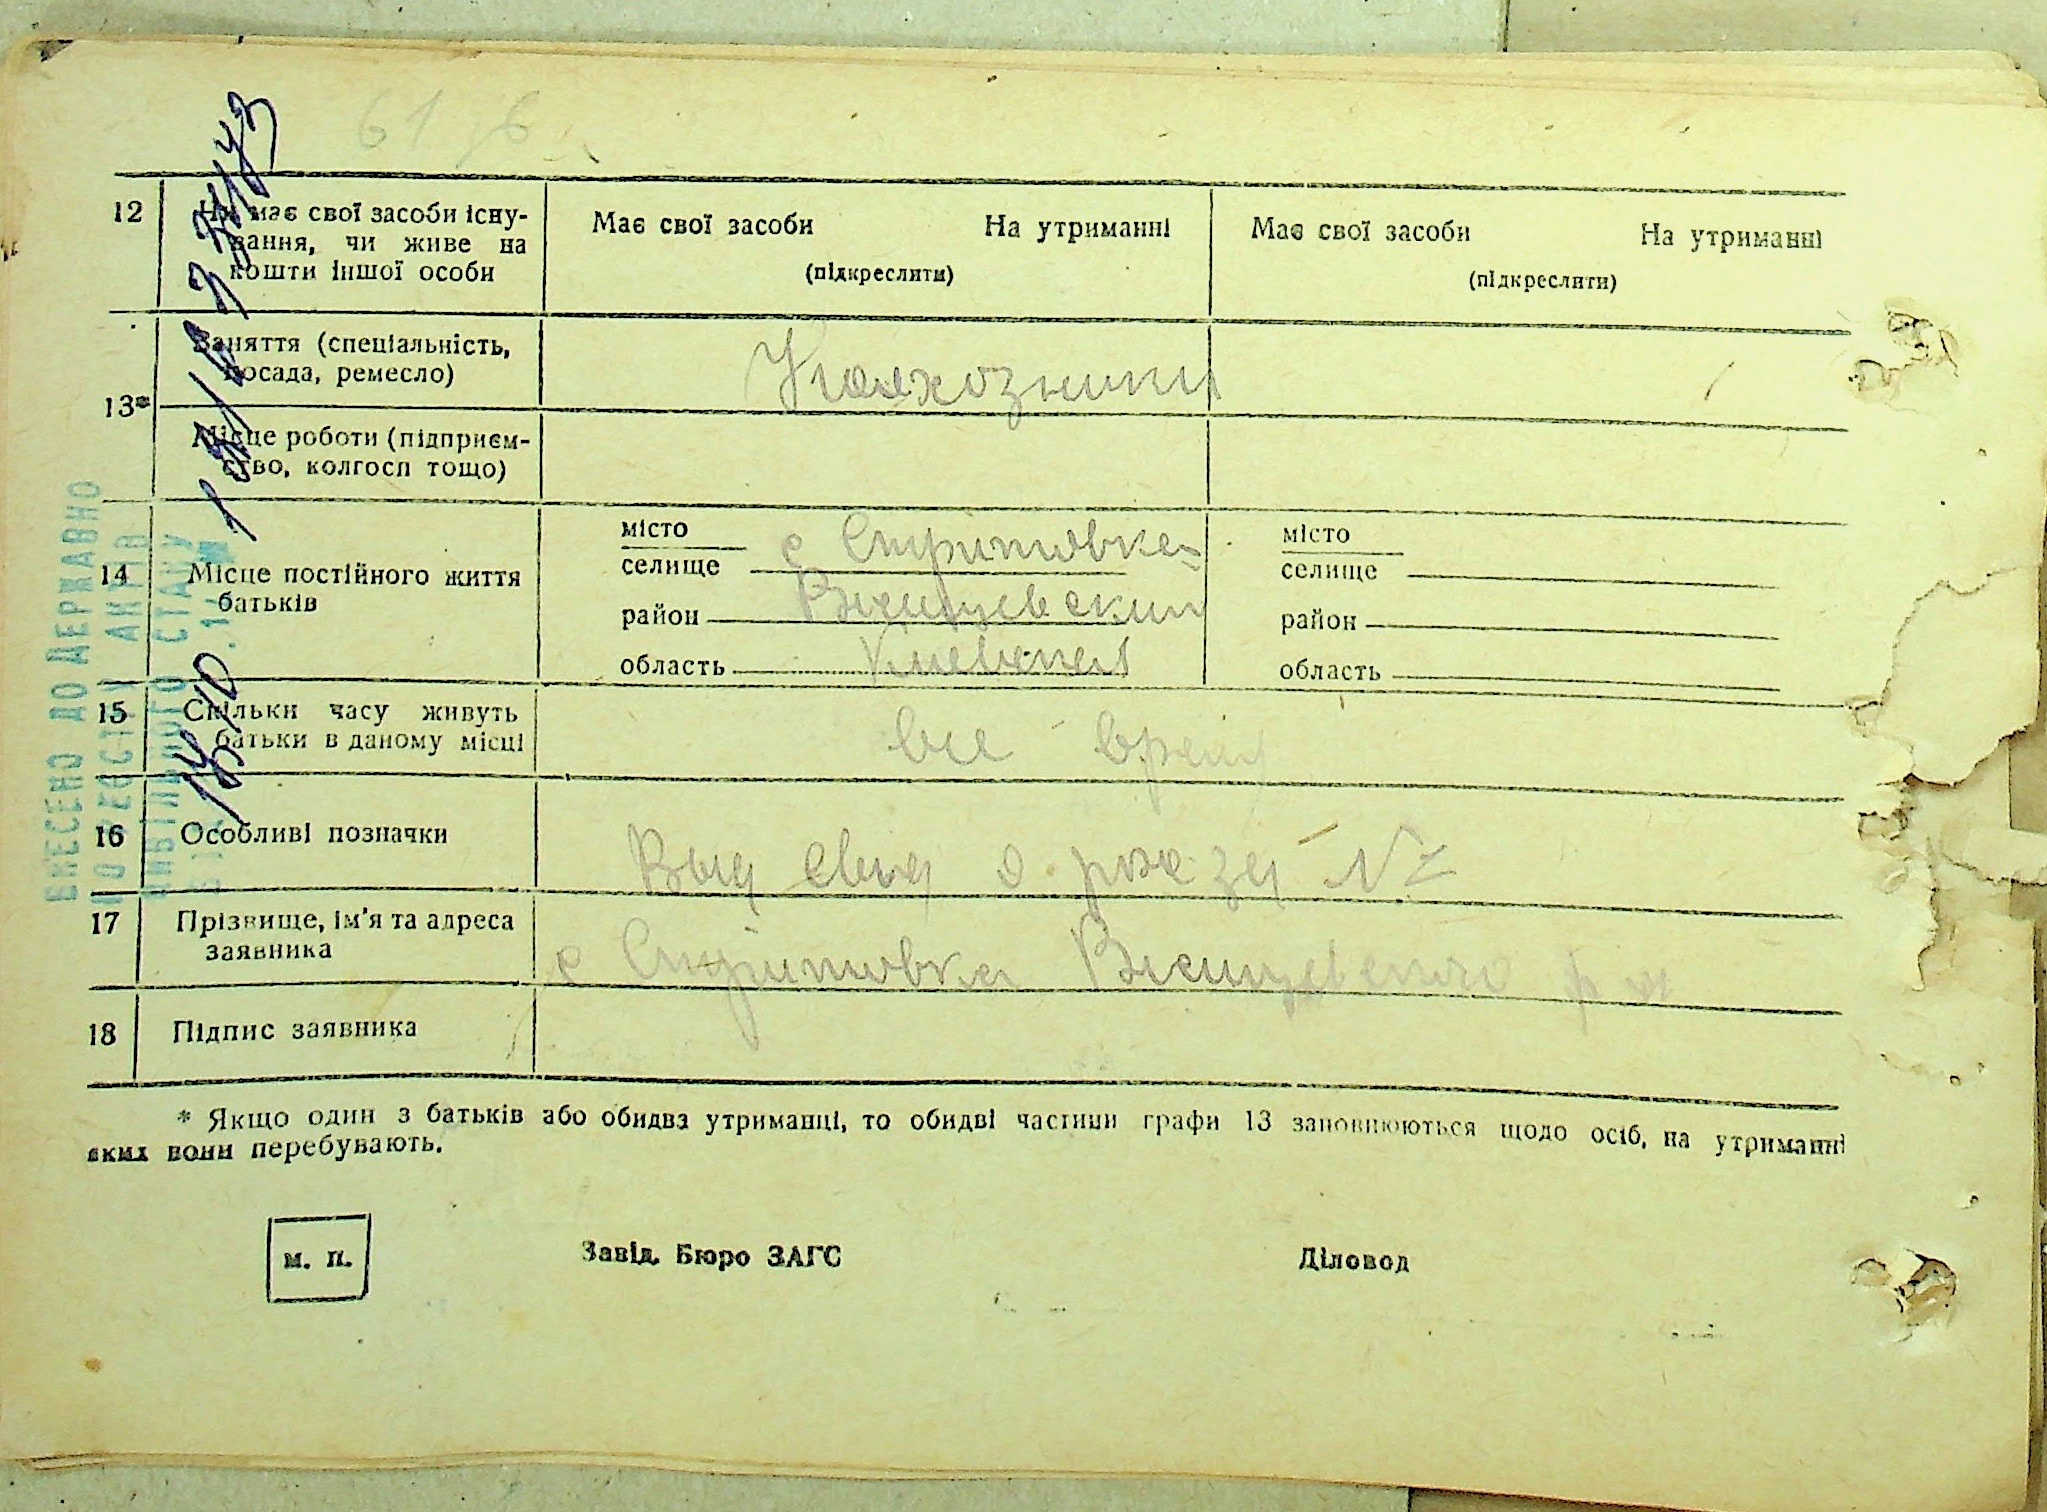 61 б
12 Чи має свої засоби існу-
вання, чи живе на
кошти іншої особи
Має свої засоби На утриманні
(підкреслити)
Має свої засоби На утриманні
(підкреслити)
13*
Заняття (спеціальність,
посада, ремесло)
Колхозники
Місце роботи (підприєм-
ство, колгосп тощо)
14 Місце постійного життя
батьків
місто
селище с Скритовка
район
область Киевская
місто
селище
район
область
15 Скільки часу живуть
батьки в даному місці
все время
16 Особливі позначки
Выд свид о рожд №
17 Прізвище, ім'я та адреса
заявника
с Скритовка р на
18 Підпис заявника
* Якщо один з батьків або обидва утриманці, то обидві частини графи 13 заповнюються щодо осіб, на утриманні
яких вони перебувають.
м. п.
Завід. Бюро ЗАГС
Діловод
ВНЕСЕНО ДО ДЕРЖАВНО
ГО РЕЄСТРУ АКТІВ
ЦИВІЛЬНОГО СТАНУ